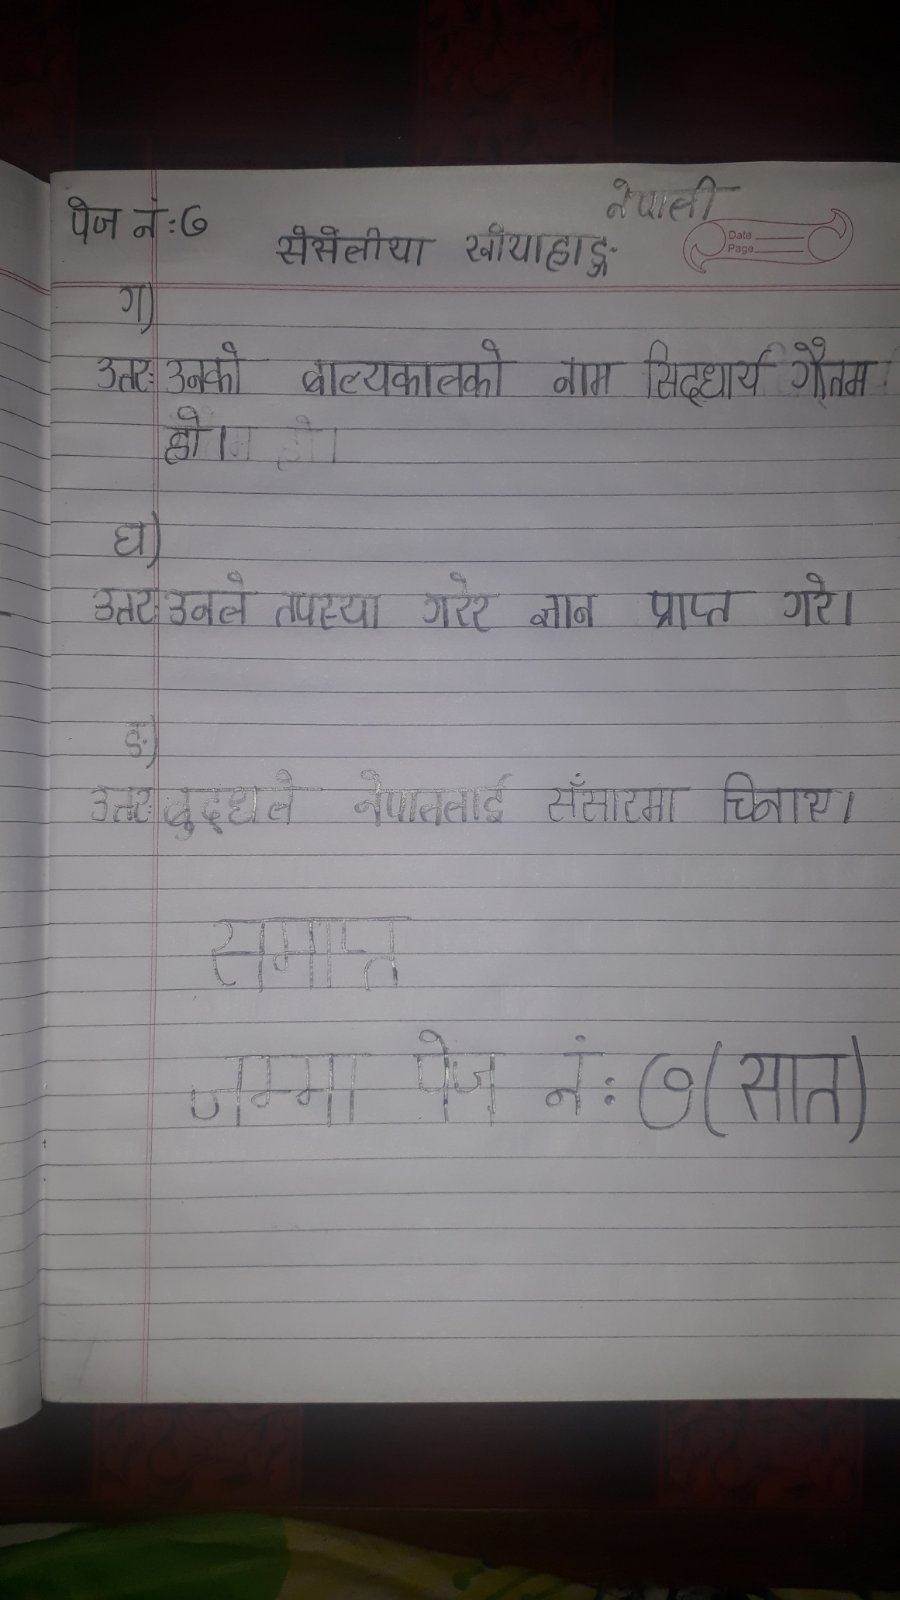 नेपाली
पेज नं:७
सेसेलीया खीयाहाङ्ग
Date
Page
ग)
उतर: उनको बाल्यकालको नाम सिद्धार्थ गौतम
हो।
घ)
उतर: उनले तपस्या गरेर ज्ञान प्राप्त गरे।
ङ)
उतर: बुद्धले नेपाललाई सँसारमा चिनाए।
समाप्त
जम्मा पेज नं: ७(सात)